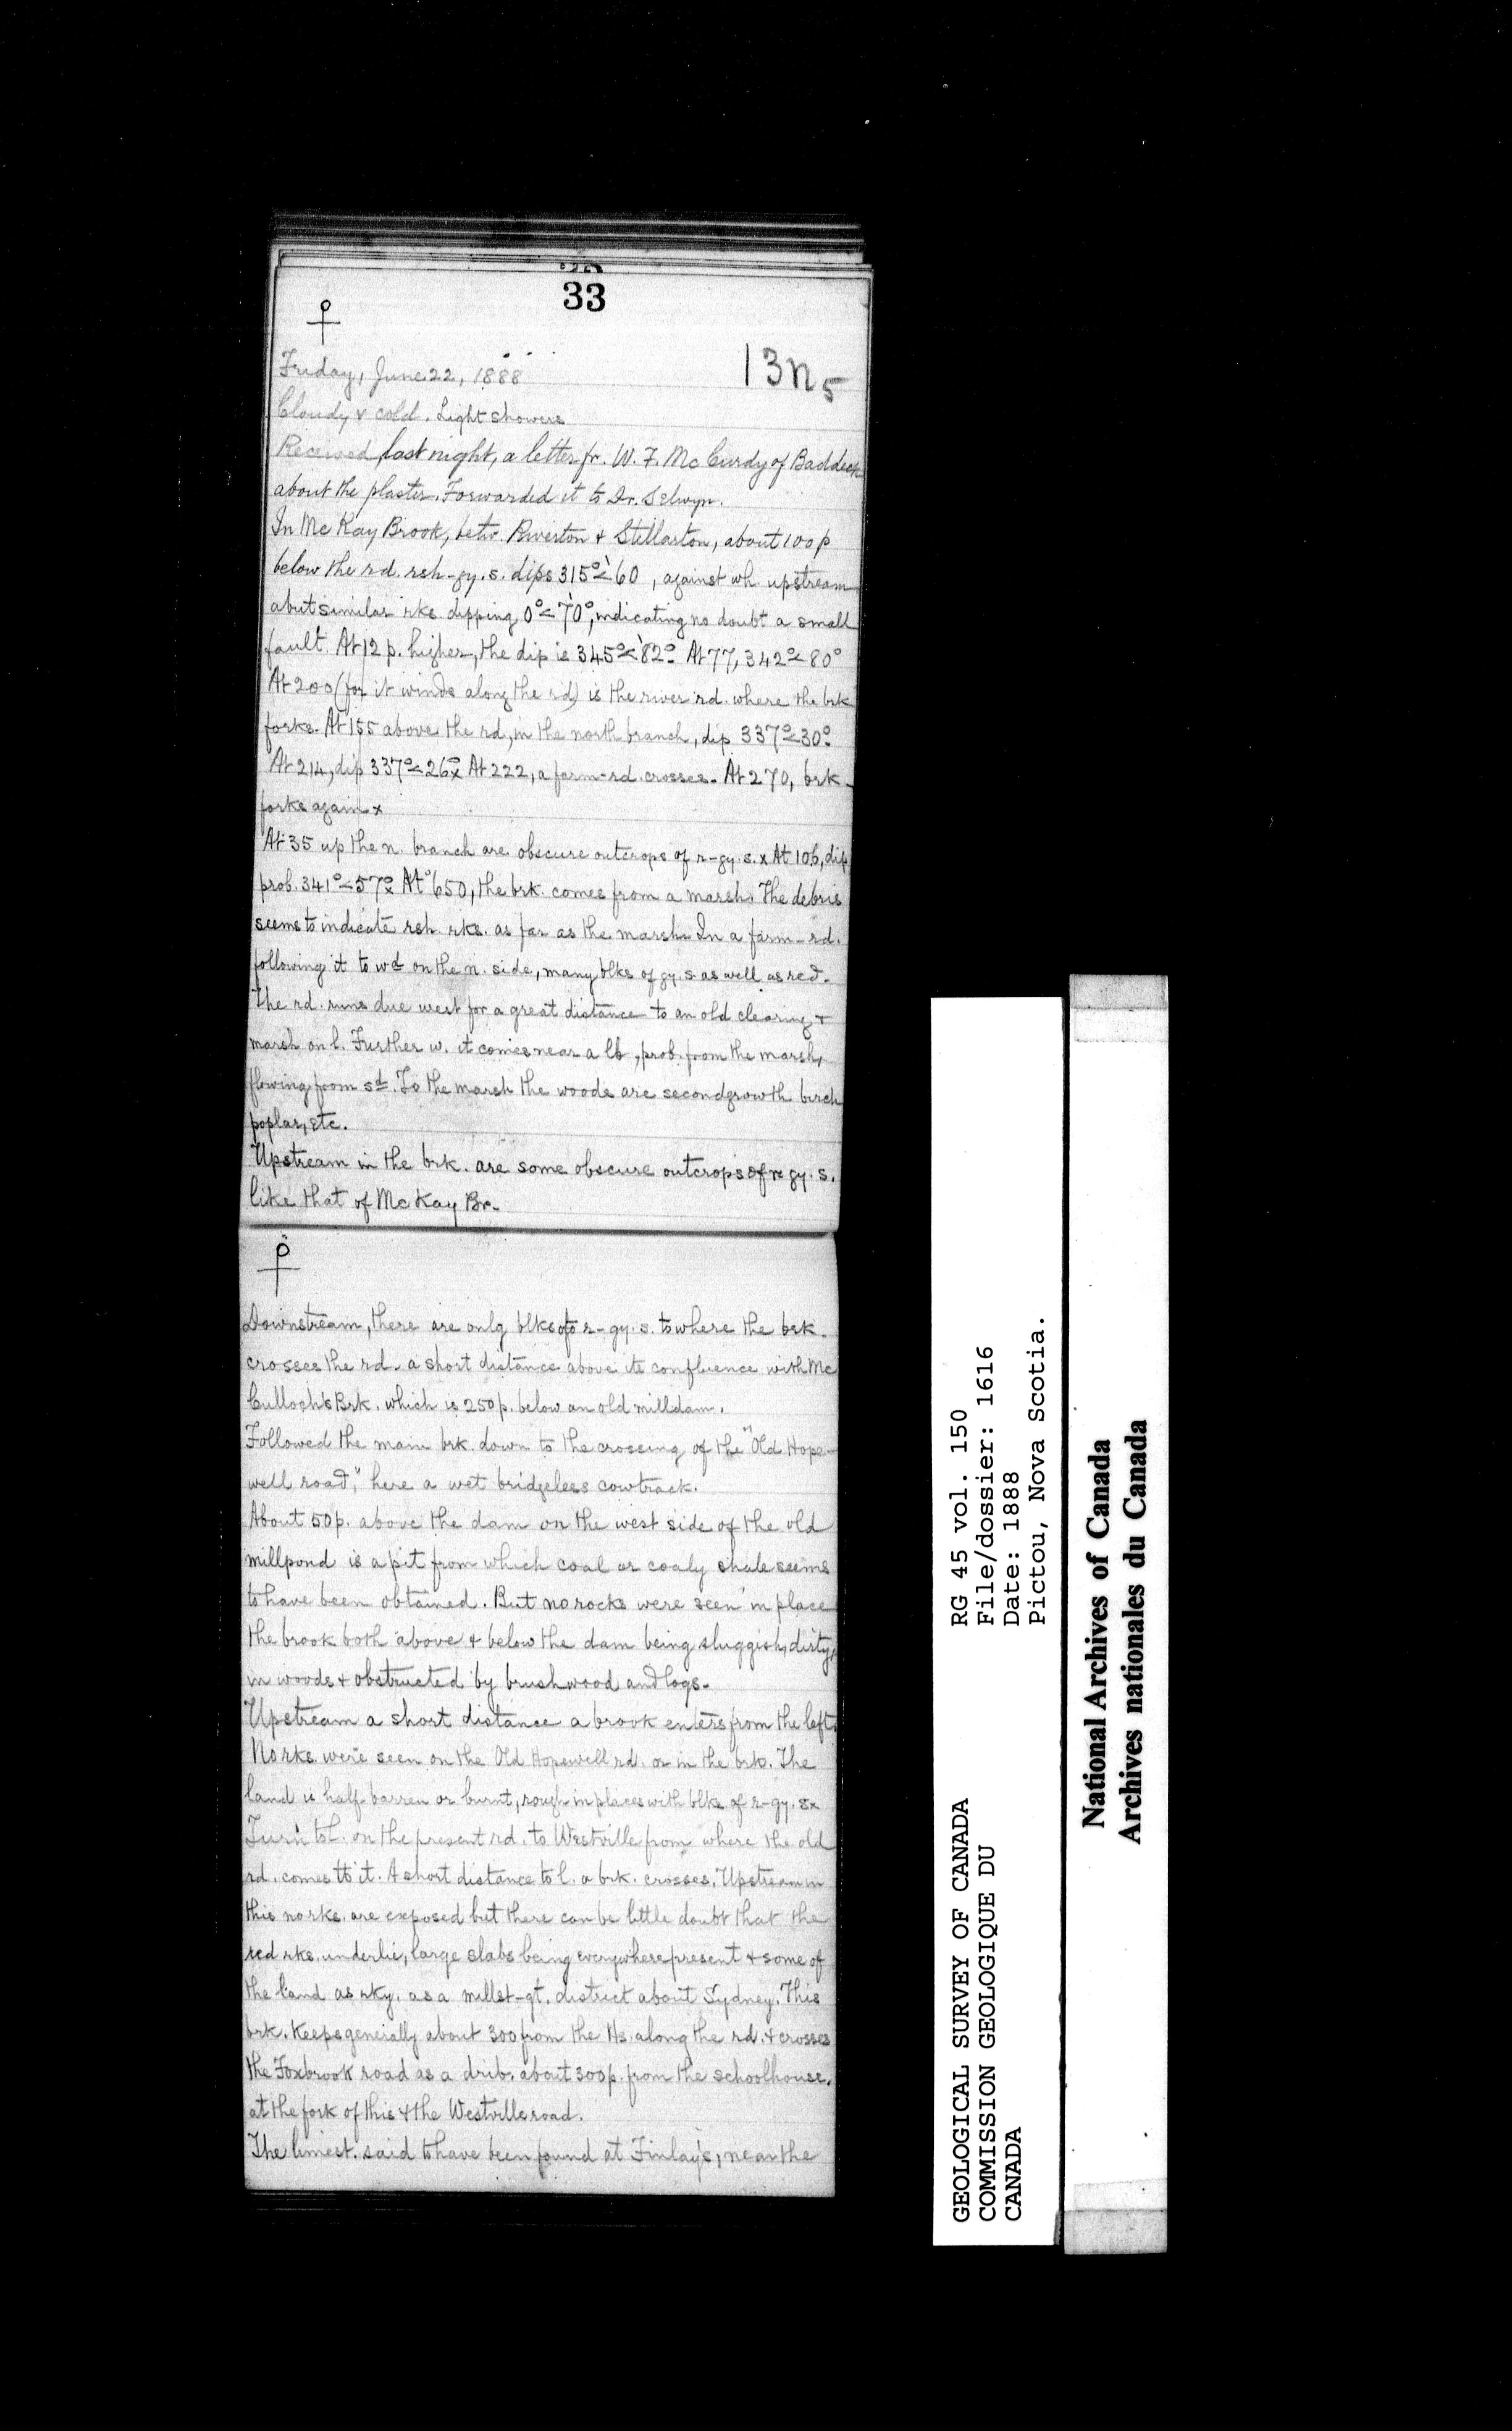 33
13n5
Friday, June 22, 1888
Cloudy & cold. Light showers
Received, last night, a letter fr. W. F. McCurdy of Baddeck
about the plaster. Forwarded it to Dr. Selwyn.
In McKay Brook, betw. Riverton & Stellarton, about 100 p
below the rd. rsh-gy. s. dips 315°<60, against wh. upstream
abut similar rks. dipping 0°<70°, indicating no doubt a small
fault. At 12 p. higher, the dip is 345°<82°. At 77, 342°<80°
At 200 (for it winds along the rd) is the river rd. where the brk
forks. At 155 above the rd, in the north branch, dip 337°<30°.
At 214, dip 337°<26°x At 222, a farm-rd. crosses. At 270, brk.
forks again x
At 35 up the n. branch are obscure outcrops of r-gy. s. x At 106, dip
prob. 341°<57°x At 650, the brk. comes from a marsh. The debris
seems to indicate rsh. rks. as far as the marsh. In a farm-rd.
following it to wd on the n. side, many blks of gy. s. as well as red.
The rd. runs due west for a great distance to an old clearing &
marsh on l. Further w. it comes near a lb, prob. from the marsh,
flowing from sd. To the marsh the woods are secondgrowth birch
poplar, etc.
Upstream in the brk. are some obscure outcrops of r gy. s.
like that of McKay Br.
Downstream, there are only blks of r-gy. s. to where the brk.
crosses the rd. a short distance above its confluence with Mc
Culloch's Brk. which is 250 p. below an old milldam.
Followed the main brk. down to the crossing of the "Old Hope-
well road," here a wet bridgeless cowtrack.
About 50 p. above the dam on the west side of the old
millpond is a pit from which coal or coaly shale seems
to have been obtained. But no rocks were seen in place
the brook both above & below the dam being sluggish, dirty,
in woods & obstructed by brushwood and logs.
Upstream a short distance a brook enters from the left.
No rks. were seen on the Old Hopewell rd. or in the brk. The
land is half-barren or burnt, rough in places with blks. of r-gy. s x
Turn to l. on the present rd. to Westville from where the old
rd. comes to it. A short distance to l. a brk. crosses. Upstream in
this no rks. are exposed but there can be little doubt that the
red rks. underlie, large slabs being everywhere present & some of
the land as rky. as a millst-gt. district about Sydney. This
brk. keeps generally about 300 from the Hs. along the rd. & crosses
the Foxbrook road as a drib. about 300 p. from the schoolhouse,
at the fork of this & the Westville road.
The limest. said to have been found at Finlay's, near the
GEOLOGICAL SURVEY OF CANADA
COMMISSION GEOLOGIQUE DU
CANADA
RG 45 vol. 150
File/dossier: 1616
Date: 1888
Pictou, Nova Scotia.
National Archives of Canada
Archives nationales du Canada